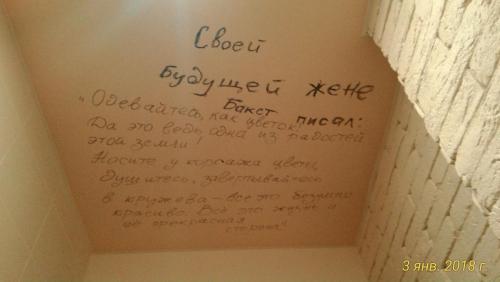 Своей
будущей жене
Бакст писал:
"Одевайтесь, как цветок!
Да это ведь одна из радостей
этой земли!
Носите у корсажа цветы,
душитесь, завертывайтесь
в кружева – все это безумно
красиво. Всё это жизнь и
её прекрасная
сторона"
3 янв. 2018 г.